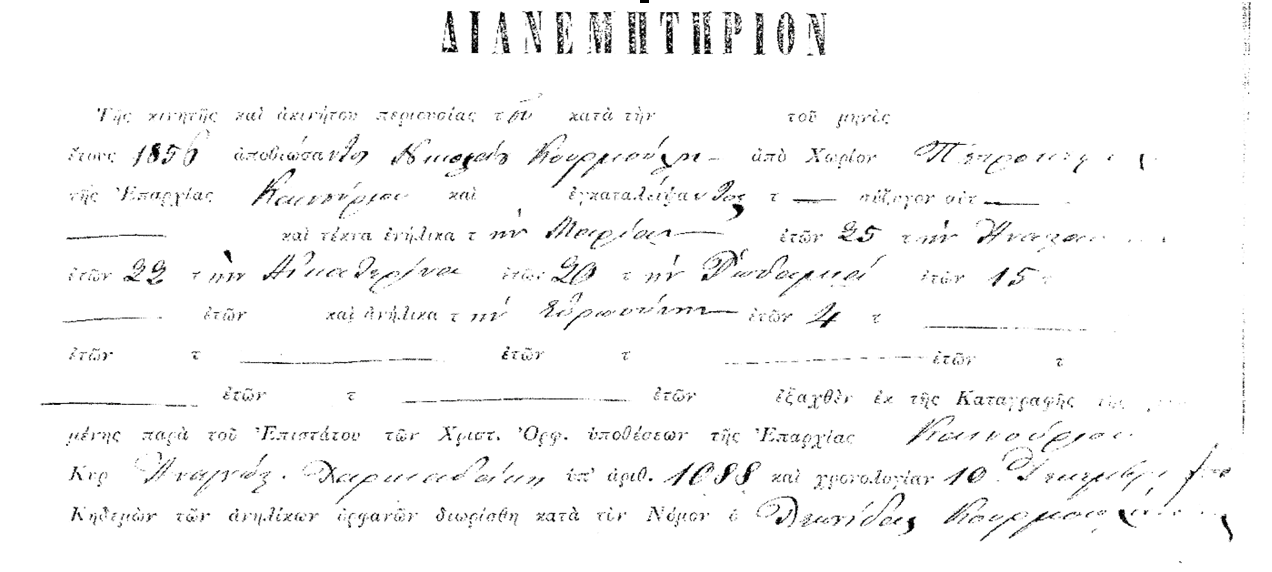 ΔΙΑΝΕΜΗΤΗΡΙΟΝ
Τῆς κινητῆς καὶ ἀκινήτου περιουσίας τοῦ κατὰ τὴν τοῦ μηνὸς
ἔτους 1856 ἀποβιώσαντος Νικολάου Κουρμούλη – ἀπὸ Χωρίον
τῆς Ἐπαρχίας Καινούριου καὶ ἐγκαταλείψαντος τ — σύζυγον οὐτ —
καὶ τέκνα ἐνήλικα τ ὴν Μαρίαν — ἐτῶν 25 τ ὴν
ἐτῶν 22 τ ὴν Αἰκατερίνα ἐτῶν 20 τ ὴν Ῥωδαμιὰ ἐτῶν 15 τ
ἐτῶν καὶ ἀνήλικα τ ὴν — ἐτῶν 4 τ
ἐτῶν τ ἐτῶν τ ἐτῶν τ
ἐτῶν τ ἐτῶν ἐξαχθὲν ἐκ τῆς Καταγραφῆς τῆς
μένης παρὰ τοῦ Ἐπιστάτου τῶν Χριστ. Ὀρφ. ὑποθέσεων τῆς Ἐπαρχίας Καινούριου
Κυρ Ἀναγνώσ. ὑπ' ἀριθ. 1088 καὶ χρονολογίαν 10
Κηδεμὼν τῶν ἀνηλίκων ὀρφανῶν διωρίσθη κατὰ τὸν Νόμον ὁ Λεωνίδας